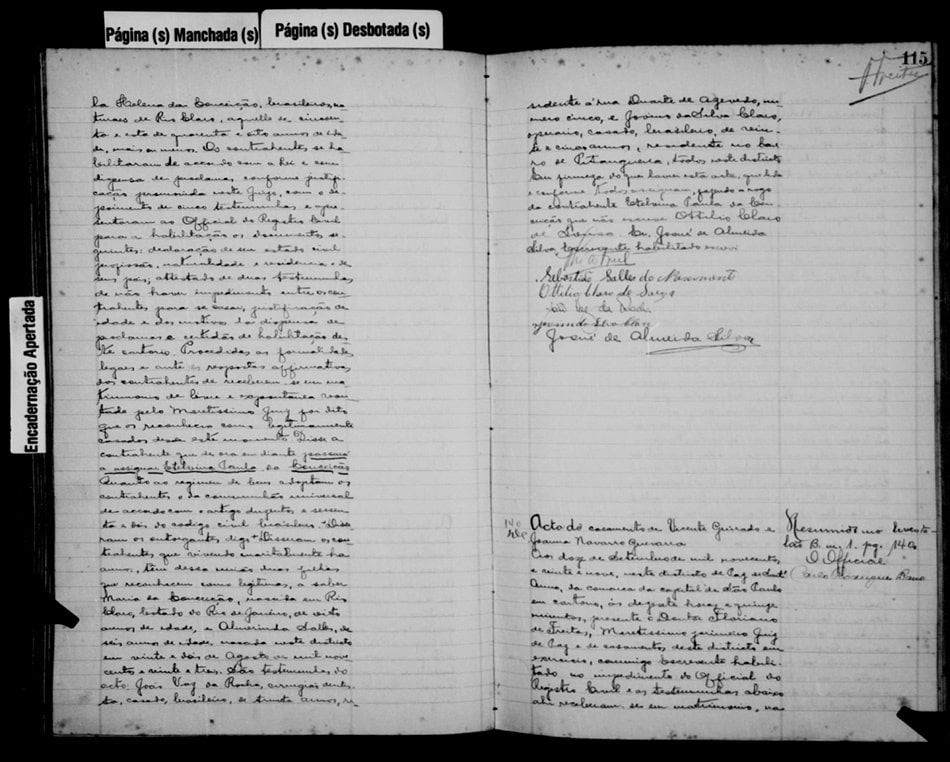 Página (s) Manchada (s)
Página (s) Desbotada (s)
Encadernação Apertada
la Helena da Conceição, brasileiros, na
turaes de Rio Claro, aquelle de cincoen
ta e esta de quarenta e oito annos de ida
de, mais ou menos. Os contrahentes se ha
bilitaram de accordo com a lei e com
dispensa de proclamas, conforme justifi
cação promovida neste Juizo, com o de
poimento de cinco testemunhas, e apre
sentaram ao Official do Registro Civil
para a habilitação os documentos se
guintes: declaração de seu estado civil
profissão, naturalidade e residencia e de
seus paes, attestado de duas testemunhas
de não haver impedimento entre os con
trahentes para se casar, justificação de
idade e dos motivos da dispensa de
proclamas e certidão de habilitação des
te cartorio. Procedidas as formalidades
legaes e ante as respostas affirmativas
dos contrahentes de receberem-se em ma
trimonio de livre e espontanea von
tade pelo Meritissimo Juiz foi dito
que os reconhecia como legitimamente
casados desde este momento. Disse a
contrahente que de ora em diante passará
a assignar Etelvina Paula da Conceição
Quanto ao regimen de bens adoptam os
contrahentes o da communhão universal
de accordo com o artigo duzentos e sessen
ta e dois do codigo civil brasileiro. Disse
ram os outorgantes digo Disseram os con
trahentes que vivendo maritalmente ha
annos, têm dessa união duas filhas
que reconhecem como legitimas, a saber:
Maria da Conceição, nascida em Rio
Claro, Estado do Rio de Janeiro, de oito
annos de idade, e Almerinda Salles, de
seis annos de idade, nascida neste districto
em vinte e dois de Agosto de mil nove
centos e vinte e tres. São testemunhas do
acto: João Vaz da Rocha, cirurgião dentis
ta, casado, brasileiro, de trinta annos, re
115
sidente á rua Duarte de Azevedo, nu
mero cinco, e Jovino da Silva Claro,
operario, casado, brasileiro, de vin
te e cinco annos, residente no bair
ro de Pitangueira, todos neste districto
Em firmeza do que lavrei esta acta, que lida
e conforme todos assignam, pegando a rogo
da contrahente Etelvina Paula da Con
ceição que não escreve Ottilio Claro
de Souza. Eu, Josué de Almeida
Silva, Escrevente habilitado escrevi
Sebastião Salles do Nascimento
Ottilio Claro de Souza
João Vaz da Rocha
Jovino da Silva Claro
Josué de Almeida Silva
Acto do casamento de Vicente Guirado e
Joanna Navarro Guevara
Aos doze de Setembro de mil novecentos
e vinte e nove, neste districto de Paz de Sant'
Anna, da comarca da capital de São Paulo
em cartorio, ás dezesete horas e quinze
minutos, presente o Doutor Floriano
de Freitas, Meritissimo primeiro Juiz
de Paz e de casamentos, deste districto em
exercicio, commigo Escrevente habili
tado, no impedimento do Official do
Registro Civil e as testemunhas abaixo
ahi receberam-se em matrimonio, na
Resumido no livro ta
lão B. n. 1. pg. 140
O Official